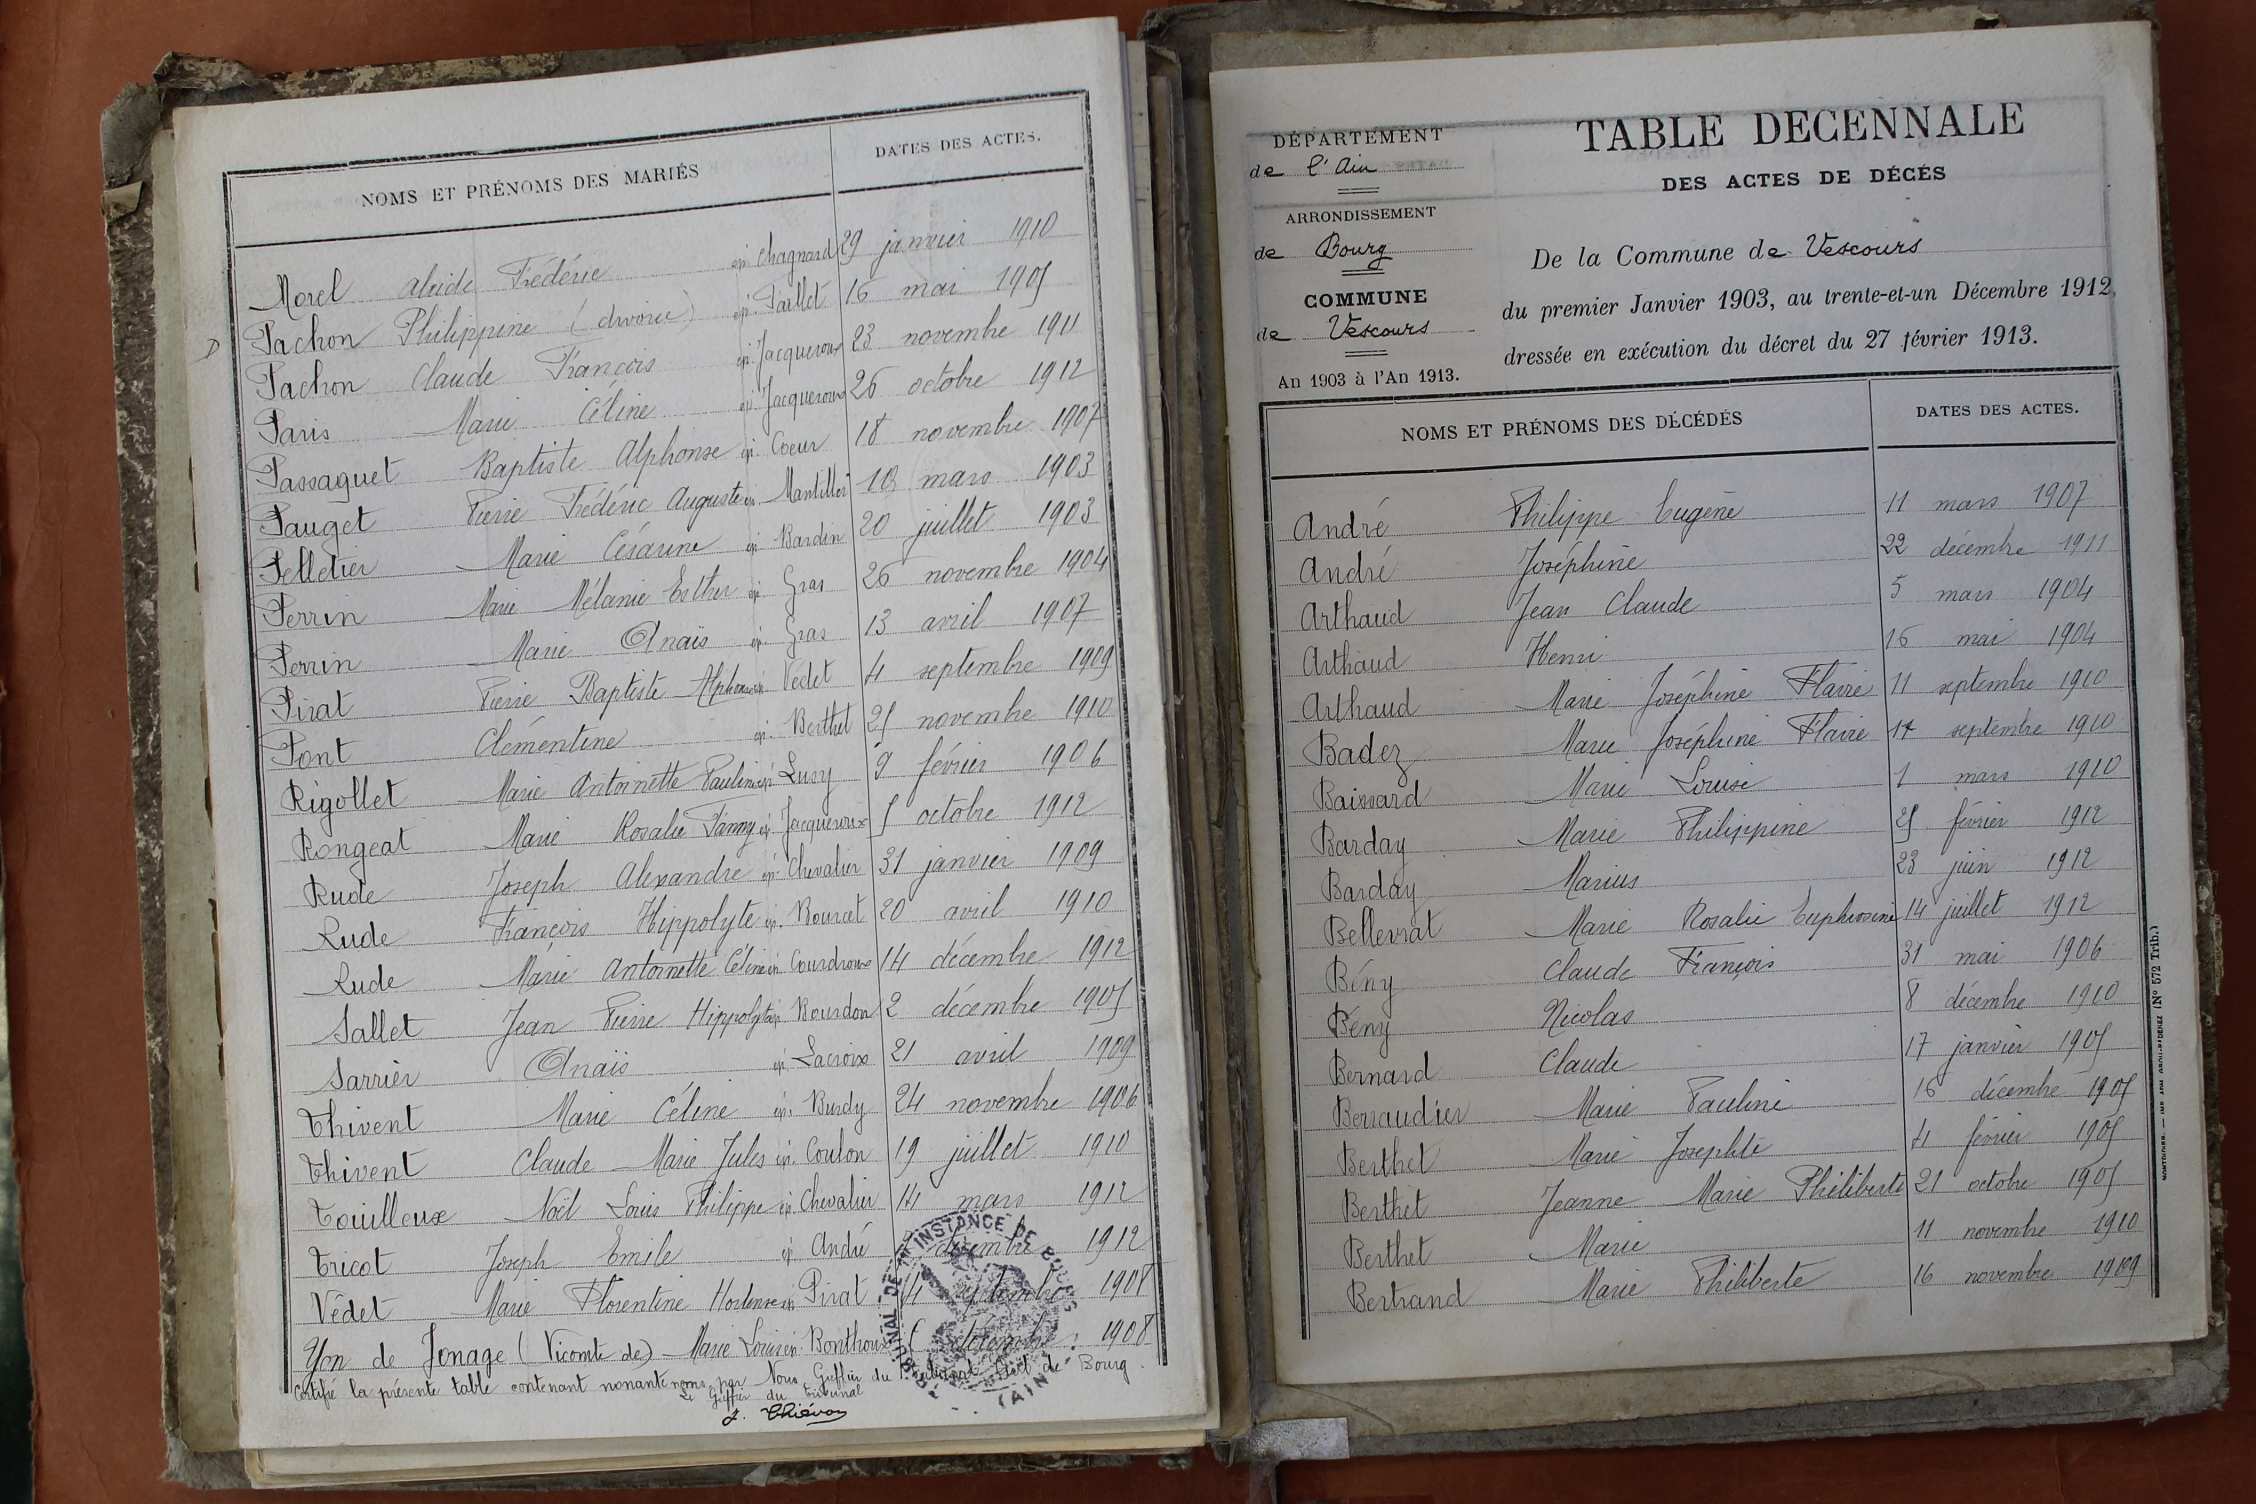 NOMS ET PRÉNOMS DES MARIÉS DATES DES ACTES.
Morel Alcide Frédéric ép. Chagnard 29 janvier 1910
D Pachon Philippine (divorcée) ép. Paillet 16 mai 1905
Pachon Claude François ép. Jacqueroux 23 novembre 1911
Paris Marie Céline ép. Jacqueroux 26 octobre 1912
Passaquet Baptiste Alphonse ép. Coeur 18 novembre 1907
Pauget Pierre Frédéric Auguste ép. Mantillet mars 1903
Pelletier Marie Césarine ép. Bardin 20 juillet 1903
Perrin Marie Mélanie Esther ép. Gras 26 novembre 1904
Perrin Marie Anaïs ép. Gras 13 avril 1907
Pirat Pierre Baptiste Alphonse ép. Védet 4 septembre 1909
Pont Clémentine ép. Berthet 25 novembre 1910
Rigollet Marie Antoinette Pauline ép. Lusy 9 février 1906
Rongeat Marie Rosalie Fanny ép. Jacqueroux 5 octobre 1912
Rude Joseph Alexandre ép. Chevalier 31 janvier 1909
Rude François Hippolyte ép. Bourcet 20 avril 1910
Rude Marie Antoinette Céline ép. Courdroux 14 décembre 1912
Sallet Jean Pierre Hippolyte ép. Bourdon 2 décembre 1905
Sarrier Anaïs ép. Lacroix 21 avril 1909
Thivent Marie Céline ép. Burdy 24 novembre 1906
Thivent Claude Marie Jules ép. Coulon 19 juillet 1910
Touilloux Noël Louis Philippe ép. Chevalier 14 mars 1912
Tricot Joseph Emile ép. André décembre 1912
Védet Marie Florentine Hortense ép. Pirat 4 septembre 1908
Yon de Jonage (Vicomte de) Marie Louis ép. Bonthoux décembre 1908
Certifié la présente table contenant nonante noms par Nous Greffier du Tribunal de Bourg.
Le Greffier du tribunal
J. Thiévon
TRIBUNAL DE 1RE INSTANCE DE BOURG (AIN)
DÉPARTEMENT
de l'Ain
ARRONDISSEMENT
de Bourg
COMMUNE
de Vescours
An 1903 à l'An 1913.
TABLE DECENNALE
DES ACTES DE DÉCÉS
De la Commune de Vescours
du premier Janvier 1903, au trente-et-un Décembre 1912,
dressée en exécution du décret du 27 février 1913.
NOMS ET PRÉNOMS DES DÉCÉDÉS DATES DES ACTES.
André Philippe Eugène 11 mars 1907
André Joséphine 22 décembre 1911
Arthaud Jean Claude 5 mars 1904
Arthaud Henri 16 mai 1904
Arthaud Marie Joséphine Flavie 11 septembre 1910
Badez Marie Joséphine Flavie septembre 1910
Baissard Marie Louise 1 mars 1910
Barday Marie Philippine 25 février 1912
Barday Marius 23 juin 1912
Bellevrat Marie Rosalie Euphrosine 14 juillet 1912
Bény Claude François 31 mai 1906
Bény Nicolas 8 décembre 1910
Bernard Claude 17 janvier 1905
Berraudier Marie Pauline 16 décembre 1905
Berthet Marie Josephte 4 février 1905
Berthet Jeanne Marie Philiberte 21 octobre 1905
Berthet Marie 11 novembre 1910
Bertrand Marie Philiberte 16 novembre 1909
(No 572 Trib.)